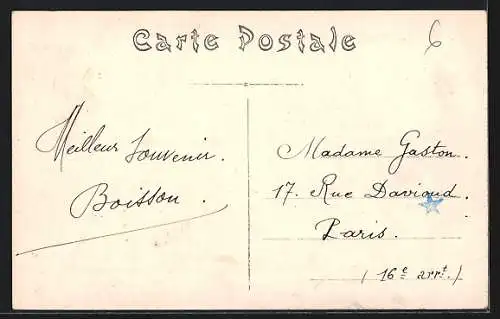 Carte Postale
6
Meilleur Souvenir.
Boisson.
Madame Gaston.
17. Rue Davioud.
Paris.
(16e arrt.)